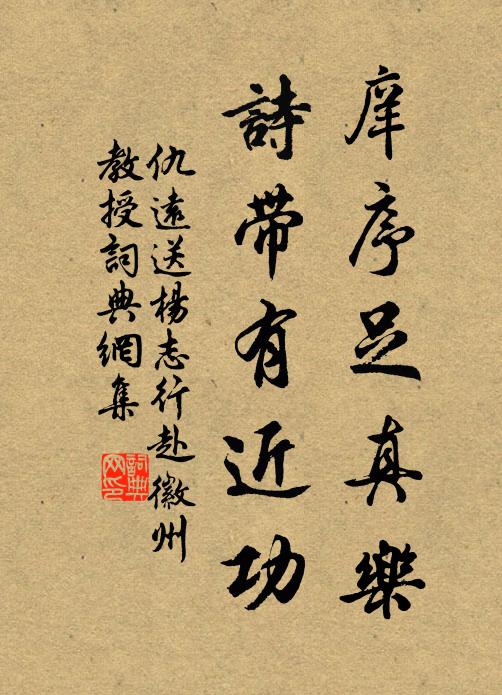 庠序足真樂
詩帶有近功
仇遠送楊志行赴徽州
教授詞典網集
詞典
网印